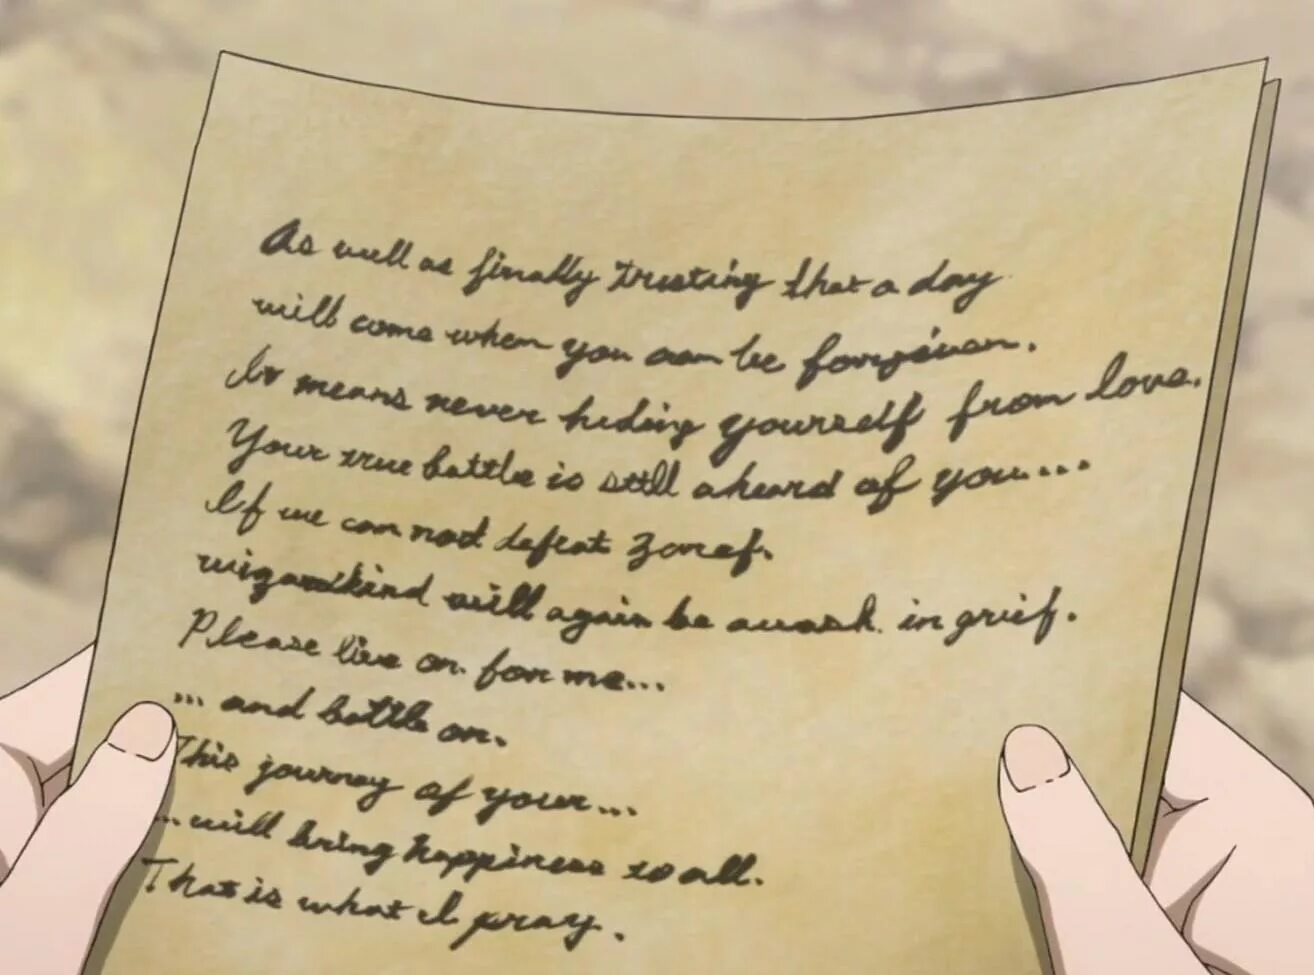 As well as finally trusting that a day
will come when you can be forgiven.
It means never hiding yourself from love.
Your true battle is still aheard of you...
If we can not defeat Zeref.
wizardkind will again be awash in grief.
Please live on for me...
... and battle on.
This journey of your...
... will bring happiness to all.
That is what I pray.